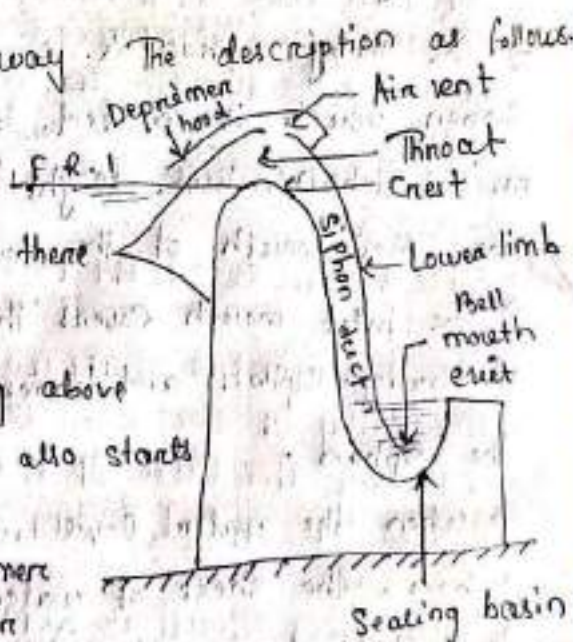 way The description as follows.
Deprimer hood.
Air vent
F.R.L
Throat
Crest
there
Siphon duct
Lower limb
Bell mouth exit
g above
also starts
mer
Sealing basin